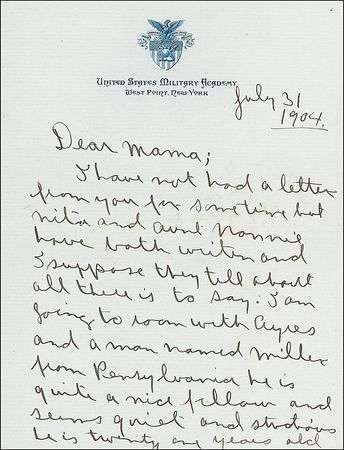 United States Military Academy
West Point, New York
July 31
1904.
Dear Mama;
I have not had a letter
from you for sometime but
nita and aunt Nannie
have both writen and
I suppose they tell about
all there is to say. I am
going to room with Ayres
and a man named miller
from Pensylvania he is
quite a nice fellow and
seems quiet and studious
he is twenty one years old